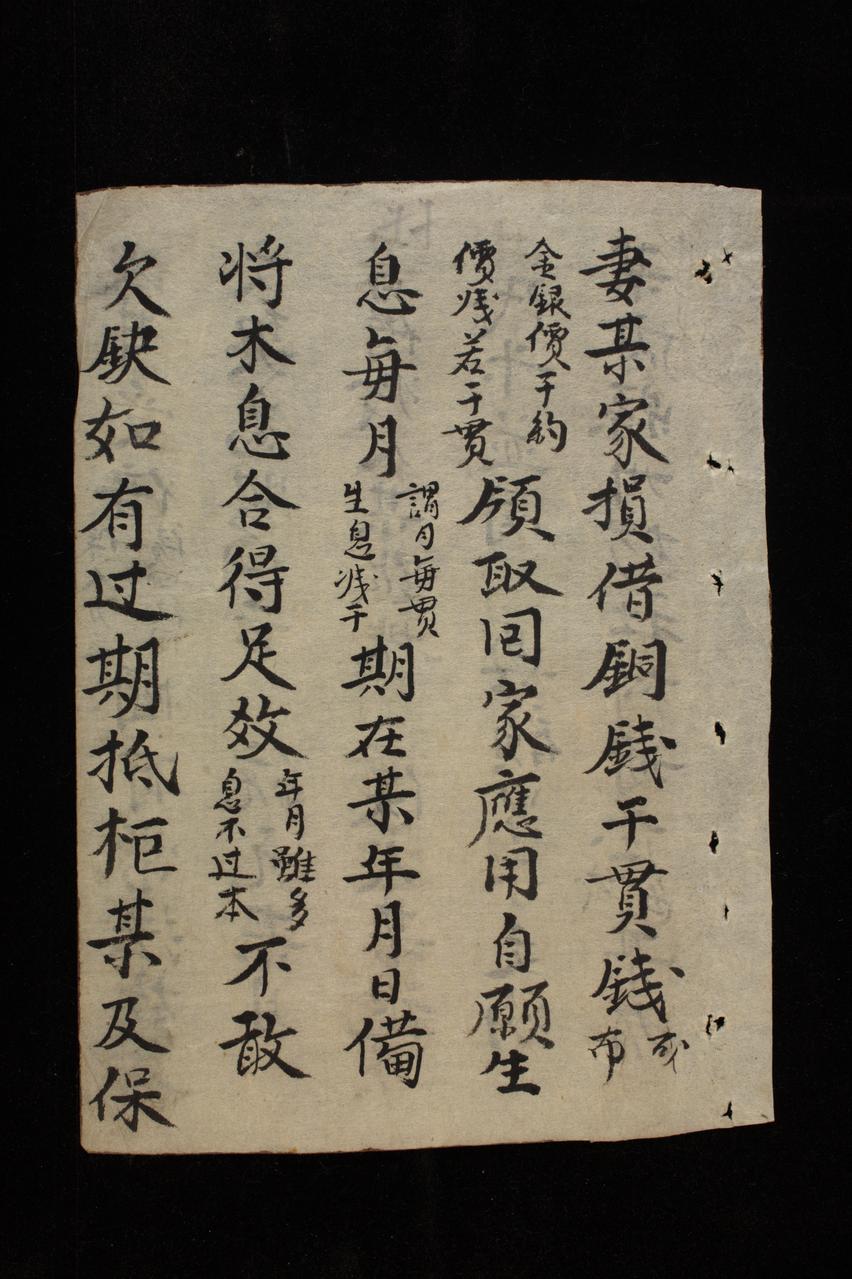 妻某家損借銅錢干貫錢或布
金銀價干約價残若干貫領取囘家應用自願生
息每月謂月每貫生息残干期在某年月日備
将木息合得足效年月雖多息不过本不敢
欠缺如有过期抵柜某及保